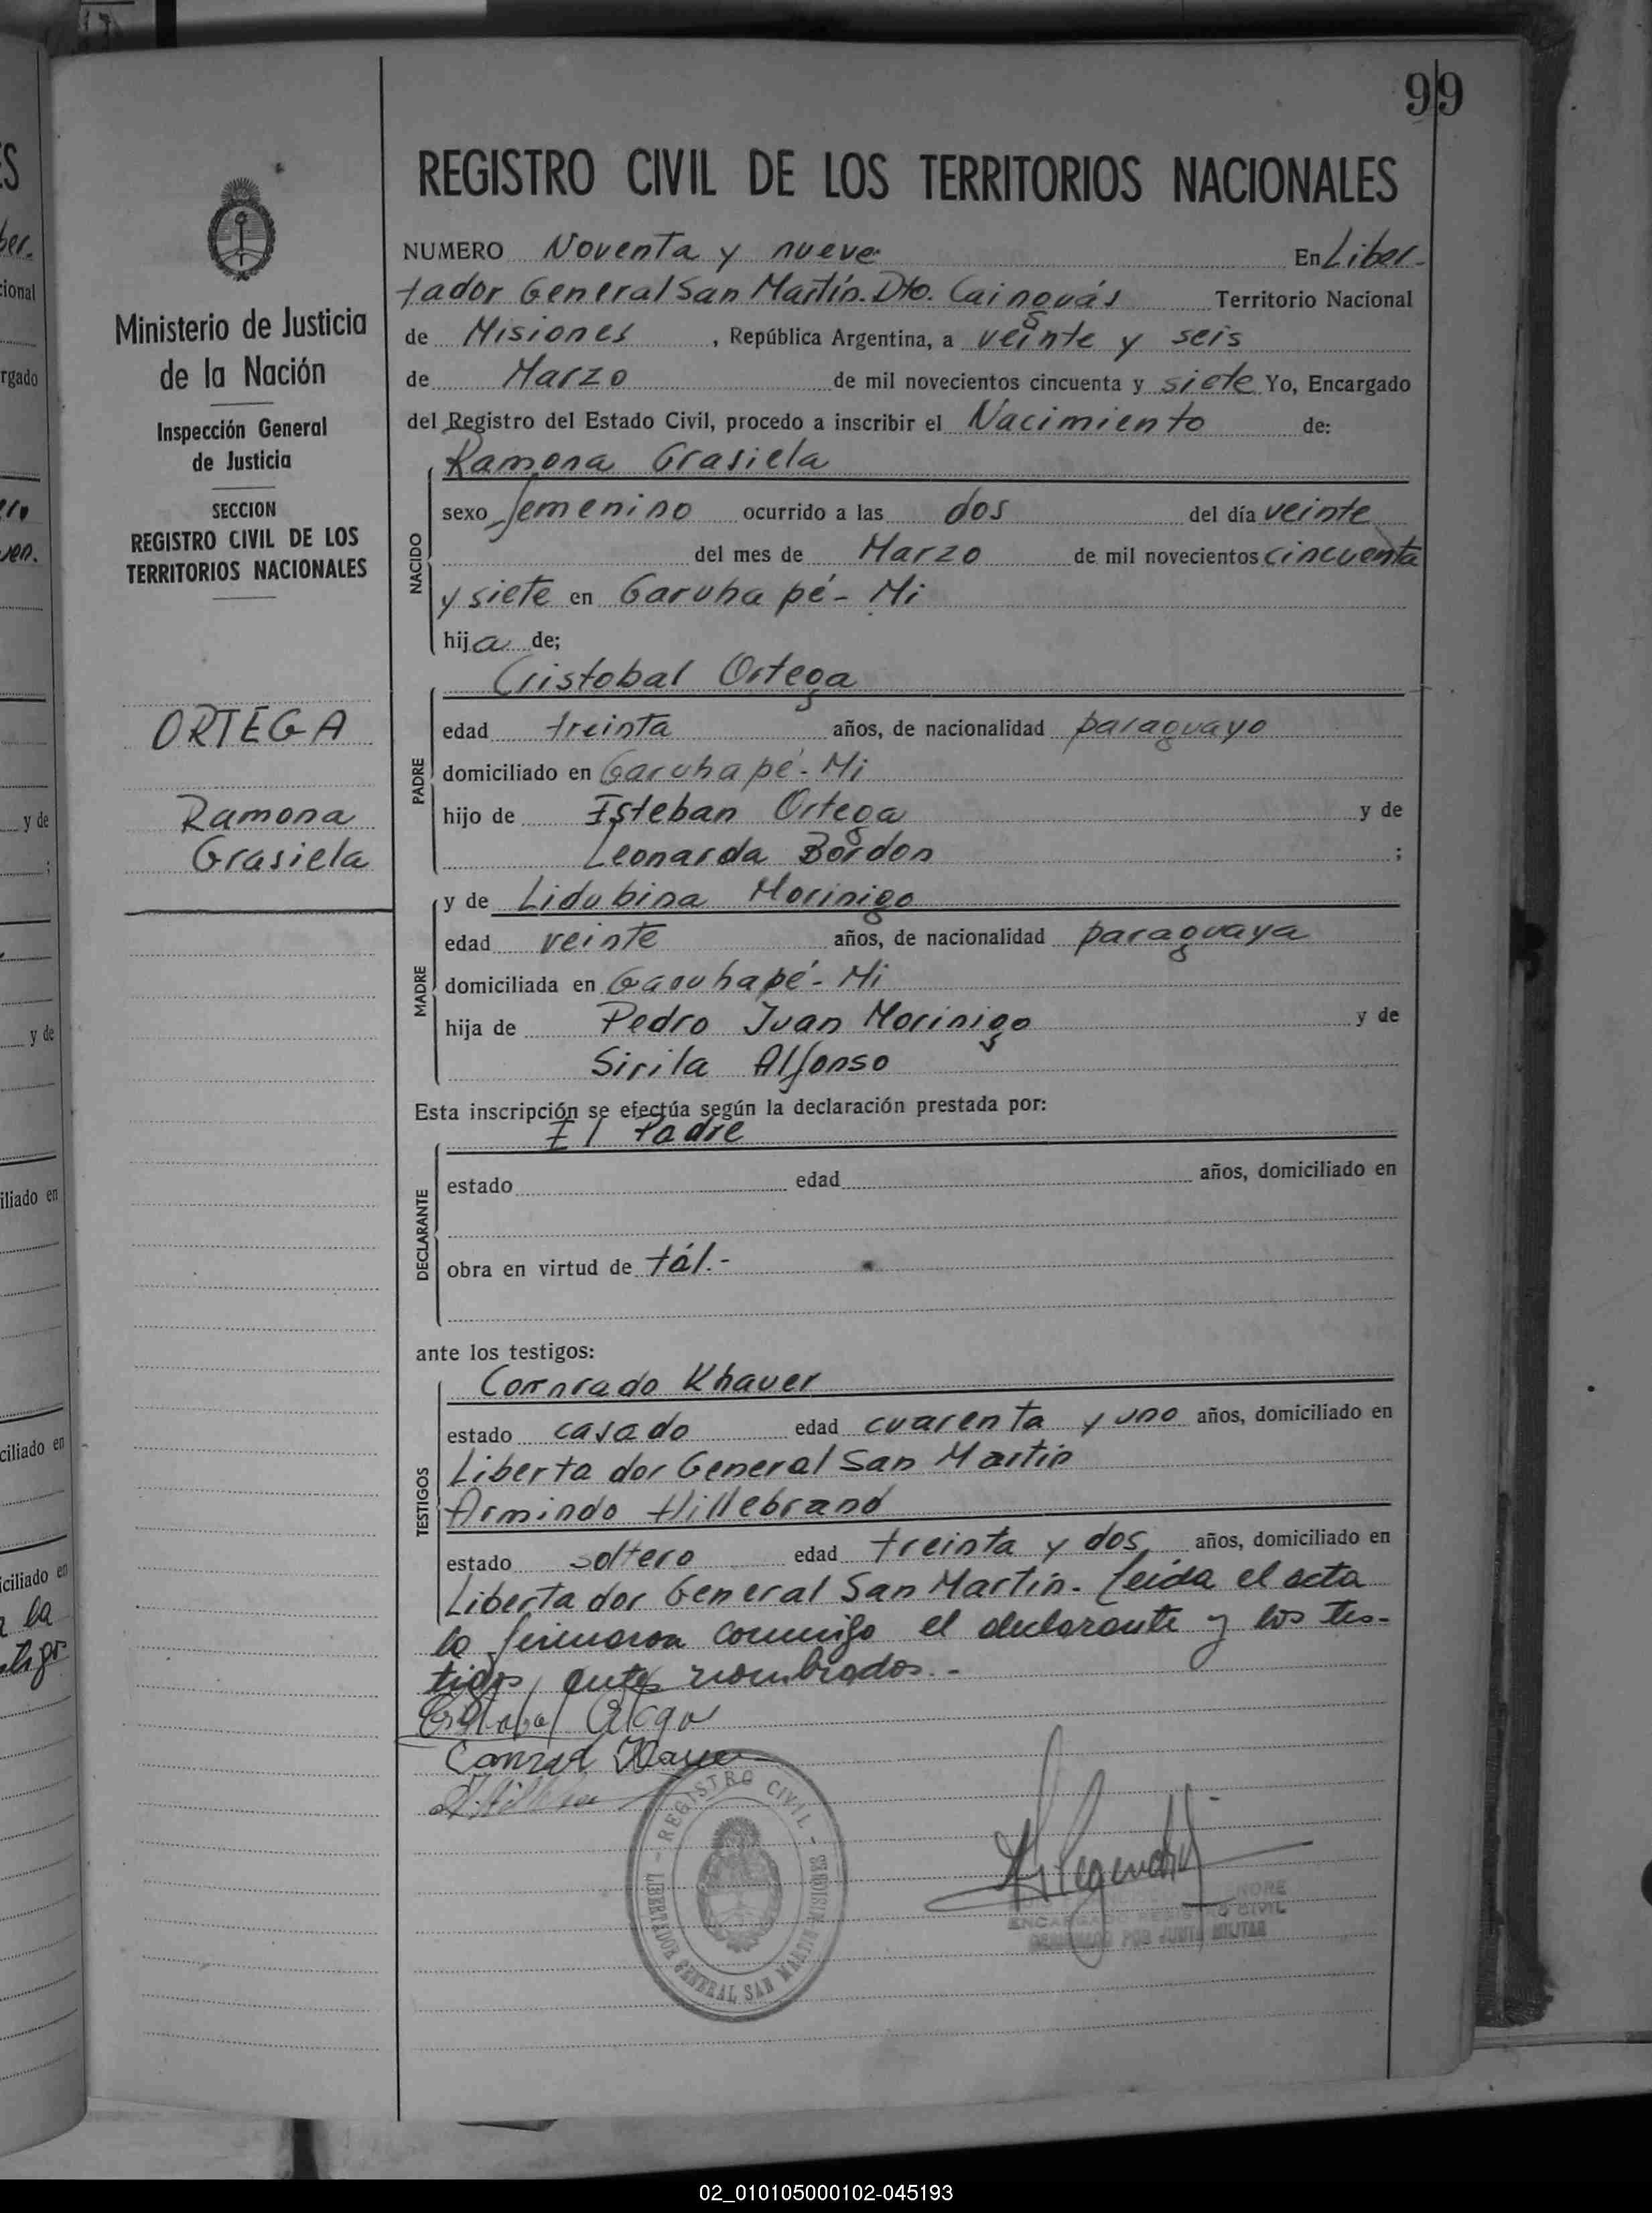 99
REGISTRO CIVIL DE LOS TERRITORIOS NACIONALES
Ministerio de Justicia
de la Nación
Inspección General
de Justicia
SECCION
REGISTRO CIVIL DE LOS
TERRITORIOS NACIONALES
ORTEGA
Ramona
Grasiela
NUMERO Noventa y nueve En Liber-
tador General San Martín. Dto. Cainguás Territorio Nacional
de Misiones, República Argentina, a veinte y seis
de Marzo de mil novecientos cincuenta y siete Yo, Encargado
del Registro del Estado Civil, procedo a inscribir el Nacimiento de:
NACIDO
Ramona Grasiela
sexo femenino ocurrido a las dos del día veinte
del mes de Marzo de mil novecientos cincuenta
y siete en Garuhapé- Mi
hija de;
PADRE
Cristobal Ortega
edad treinta años, de nacionalidad paraguayo
domiciliado en Garuhapé- Mi
hijo de Esteban Ortega y de
Leonarda Bordon ;
MADRE
y de Lidubina Morinigo
edad veinte años, de nacionalidad paraguaya
domiciliada en Garuhapé- Mi
hija de Pedro Juan Morinigo y de
Sirila Alfonso
Esta inscripción se efectúa según la declaración prestada por:
DECLARANTE
El Padre
estado edad años, domiciliado en
obra en virtud de tál.-
ante los testigos:
TESTIGOS
Cornrado Khauer
estado casado edad cuarenta y uno años, domiciliado en
Libertador General San Martin
Armindo Hillebrand
estado soltero edad treinta y dos, años, domiciliado en
Libertador General San Martin. Leida el acta
la firmaron conmigo el declarante y los tes-
tigos antes nombrados.-
Cristobal Ortega
REGISTRO CIVIL - MISIONES
LIBERTADOR GENERAL SAN MARTIN
ENCARGADO REGISTRO CIVIL
POR JUNTA MILITAR
02_010105000102-045193